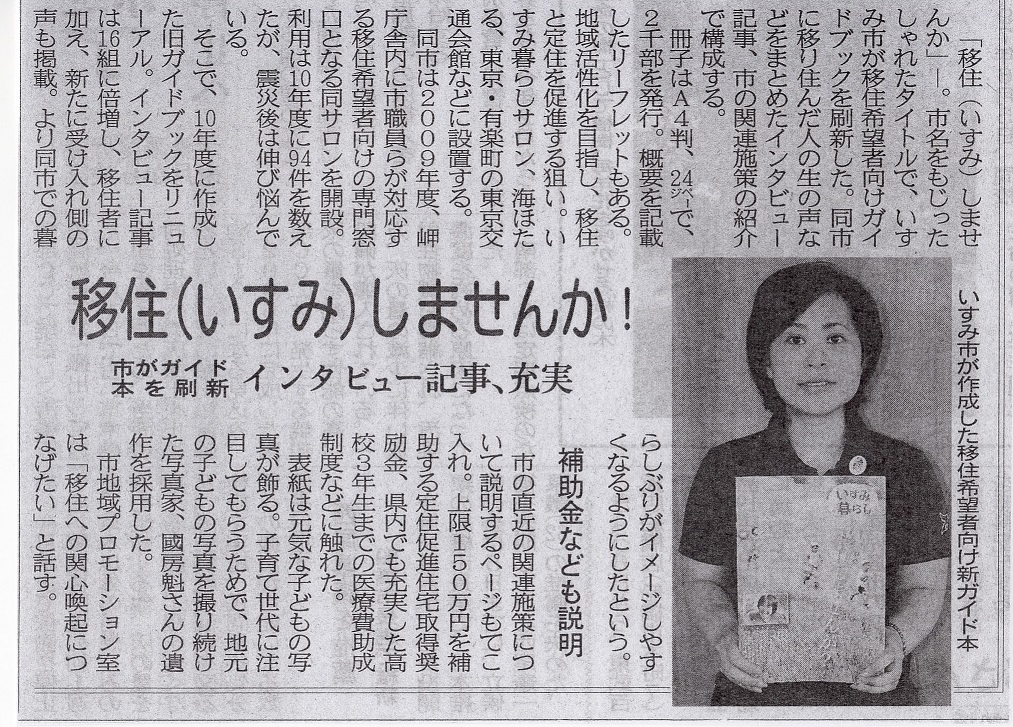 移住(いすみ)しませんか!
市がガイド
本を刷新
インタビュー記事、充実
「移住(いすみ)しませ
んか」―。市名をもじった
しゃれたタイトルで、いす
み市が移住希望者向けガイ
ドブックを刷新した。同市
に移り住んだ人の生の声な
どをまとめたインタビュー
記事、市の関連施策の紹介
で構成する。
冊子はA4判、24㌻で、
2千部を発行。概要を記載
したリーフレットもある。
地域活性化を目指し、移住
と定住を促進する狙い。い
すみ暮らしサロン、海ほた
る、東京・有楽町の東京交
通会館などに設置する。
同市は2009年度、岬
庁舎内に市職員らが対応す
る移住希望者向けの専門窓
口となる同サロンを開設。
利用は10年度に94件を数え
たが、震災後は伸び悩んで
いる。
そこで、10年度に作成し
た旧ガイドブックをリニュ
ーアル。インタビュー記事
は16組に倍増し、移住者に
加え、新たに受け入れ側の
声も掲載。より同市での暮
らしぶりがイメージしやす
くなるようにしたという。
補助金なども説明
市の直近の関連施策につ
いて説明するページもてこ
入れ。上限150万円を補
助する定住促進住宅取得奨
励金、県内でも充実した高
校3年生までの医療費助成
制度などに触れた。
表紙は元気な子どもの写
真が飾る。子育て世代に注
目してもらうためで、地元
の子どもの写真を撮り続け
た写真家、國房魁さんの遺
作を採用した。
市地域プロモーション室
は「移住への関心喚起につ
なげたい」と話す。
いすみ市が作成した移住希望者向け新ガイド本
いすみ
暮らし